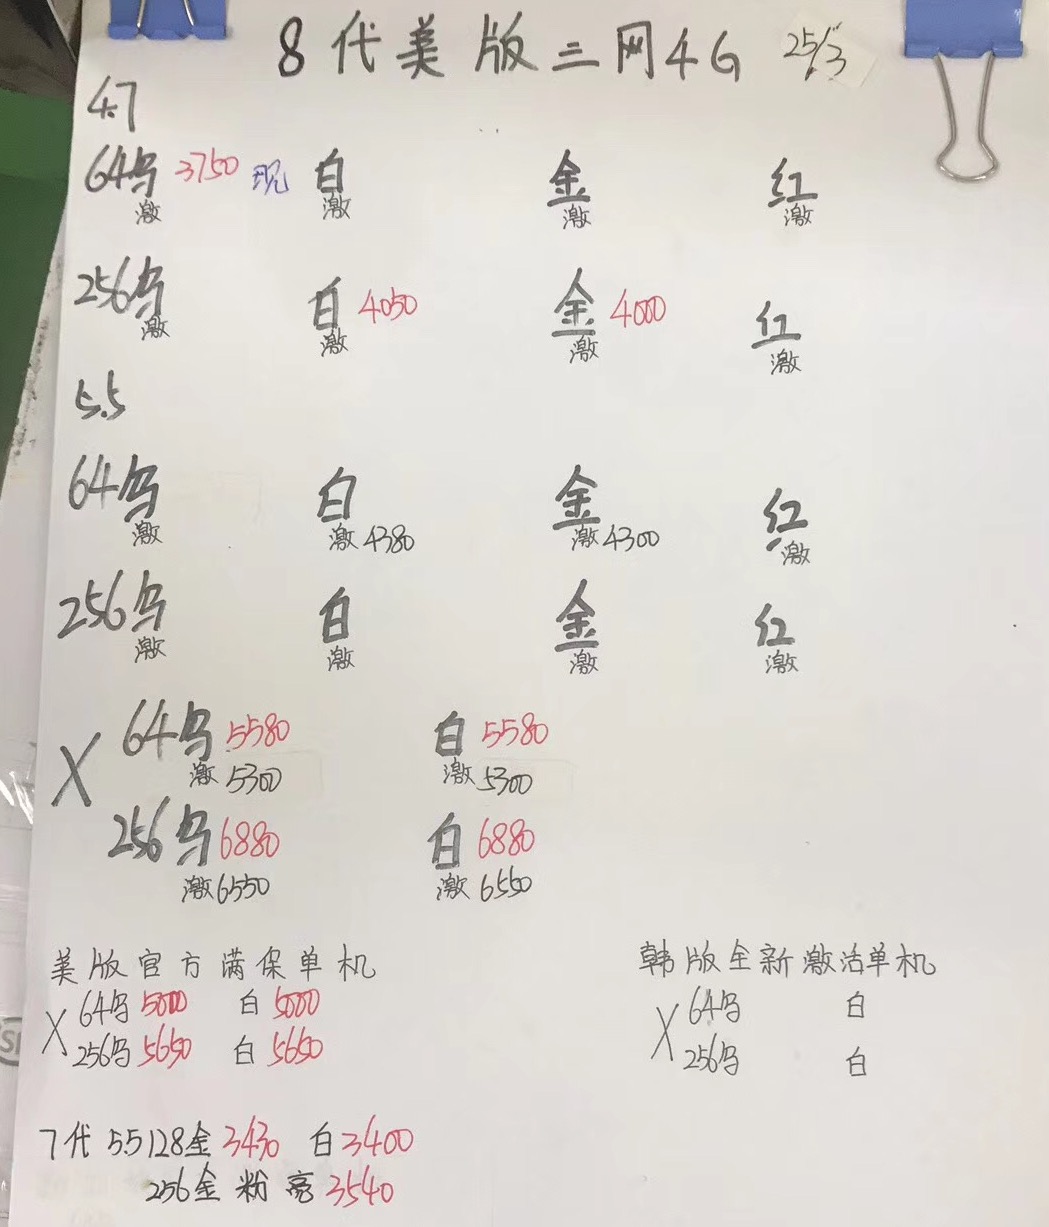 8代美版三网4G 25/3
4.7
64乌 3750 现 白 金 红
激 激 激 激
256乌 白 4050 金 4000 红
激 激 激 激
5.5
64乌 白 金 红
激 激4380 激4300 激
256乌 白 金 红
激 激 激 激
X 64乌 5580 白 5580
激 5300 激 5300
256乌 6880 白 6880
激 6550 激 6550
美版官方满保单机 韩版全新激活单机
X 64乌 5000 白 5000 X 64乌 白
256乌 5650 白 5650 256乌 白
7代 5.5 128金 3430 白 3400
256金 粉 亮 3540